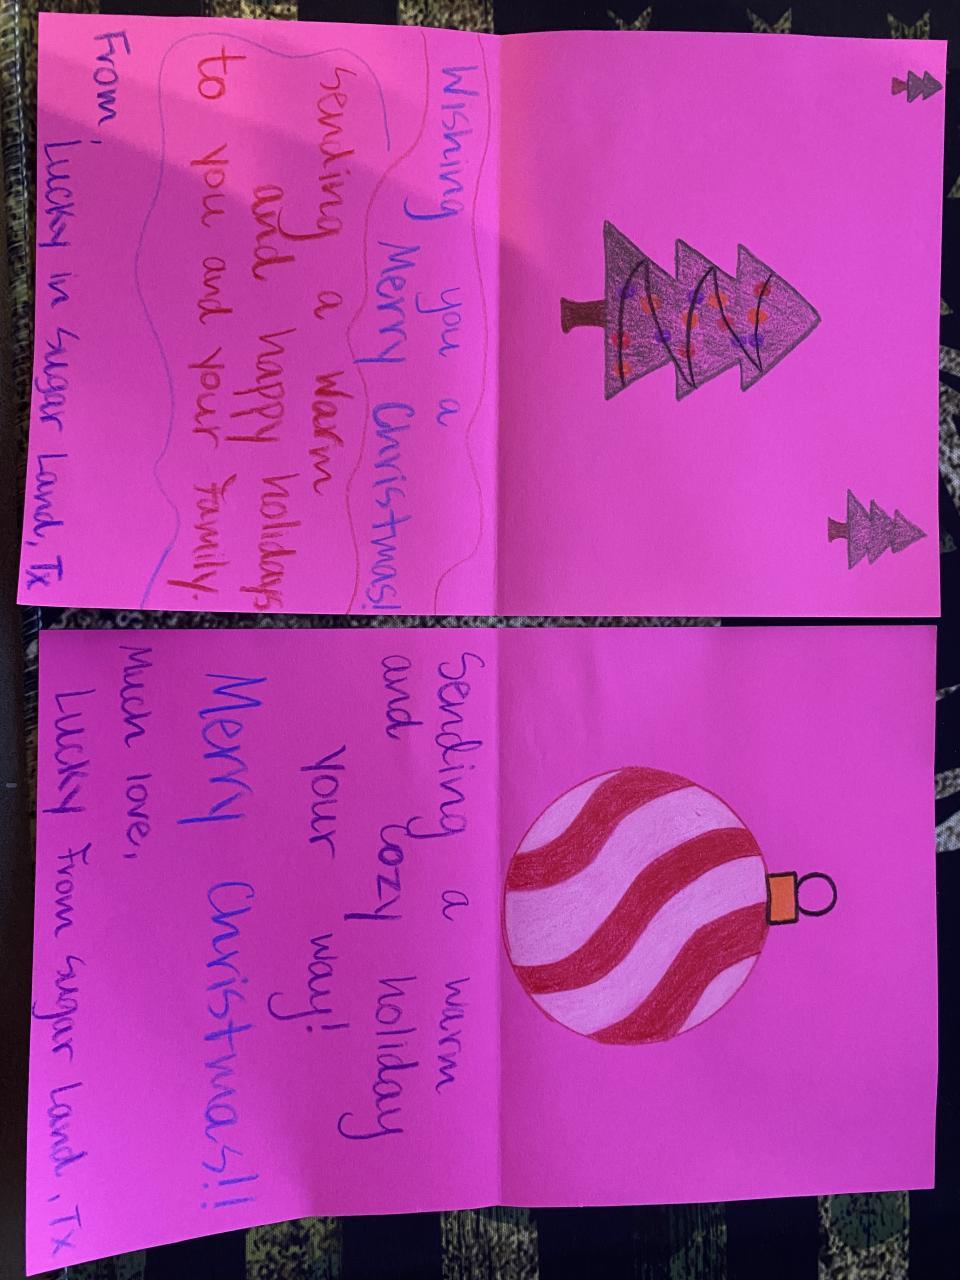 Wishing you a
Merry Christmas!
Sending a warm
and happy holidays
to you and your family.
From,
Lucky in Sugar Land, Tx
Sending a warm
and cozy holiday
your way!
Merry Christmas!!
Much love,
Lucky from Sugar Land, Tx